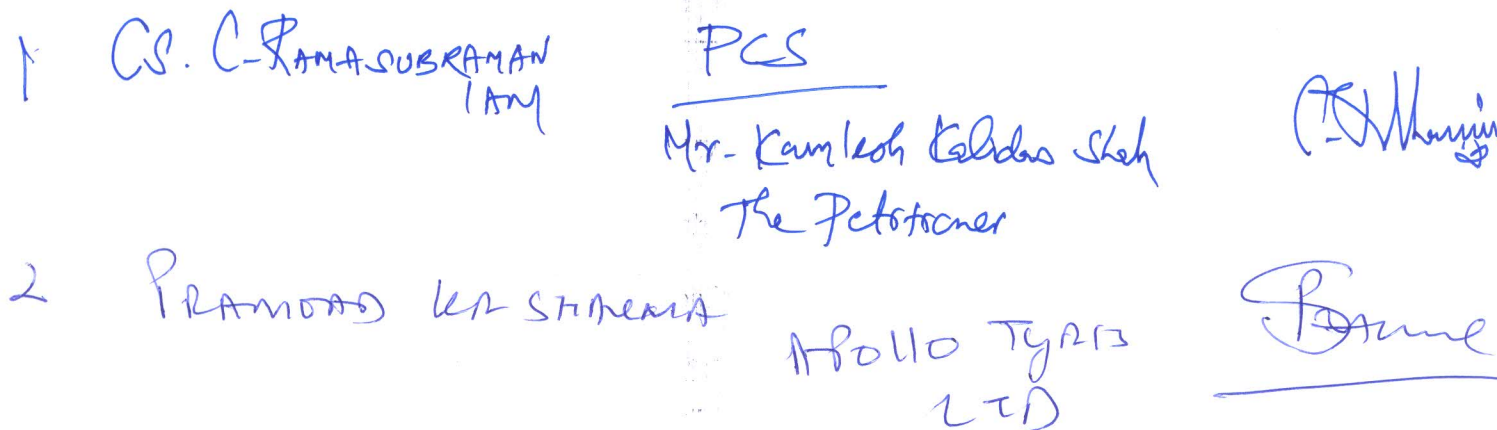 1 CS. C-RAMASUBRAMAN
IAM
PCS
Mr- Kamlesh Kalidas Shah
The Petitioner
2 PRAMOAD KR SHARMA
APOLLO TYRES
LTD